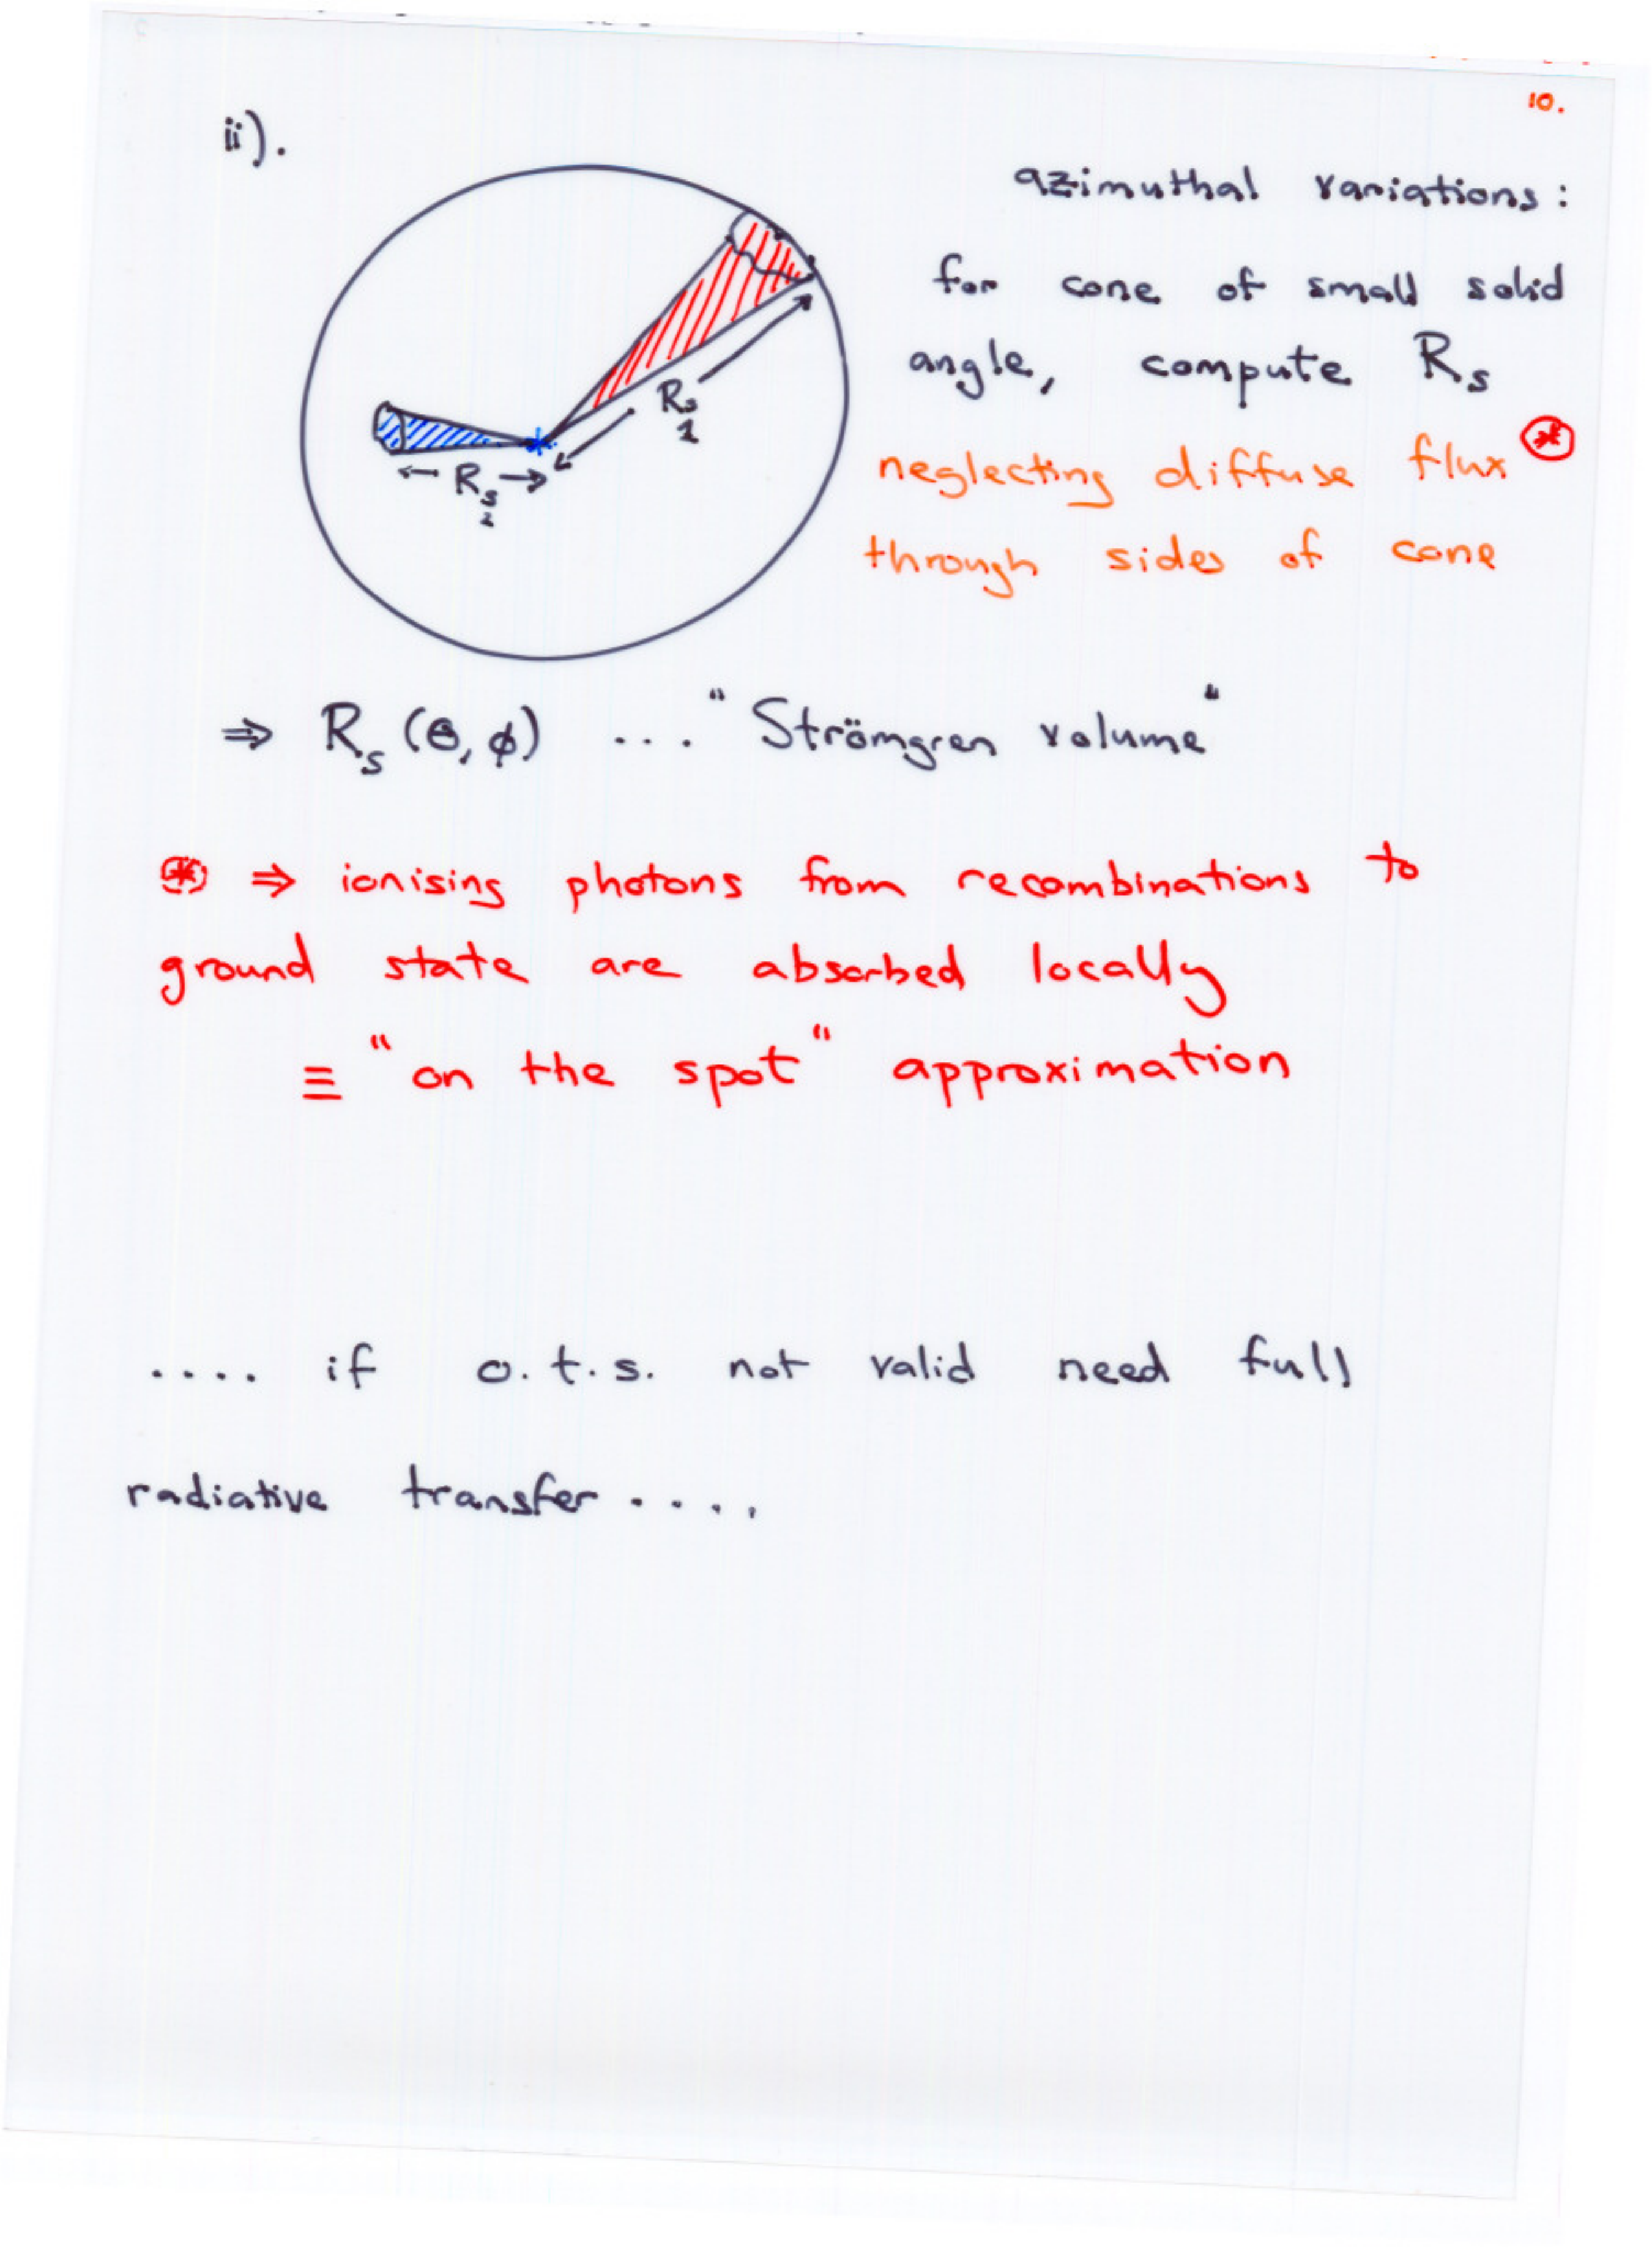 10.
ii).
azimuthal variations:
for cone of small solid
angle, compute Rs
neglecting diffuse flux *
through sides of cone
Rs1
← Rs2 →
⇒ Rs (θ, ϕ) ... "Strömgren volume"
* ⇒ ionising photons from recombinations to
ground state are absorbed locally
≡ "on the spot" approximation
.... if o.t.s. not valid need full
radiative transfer ....